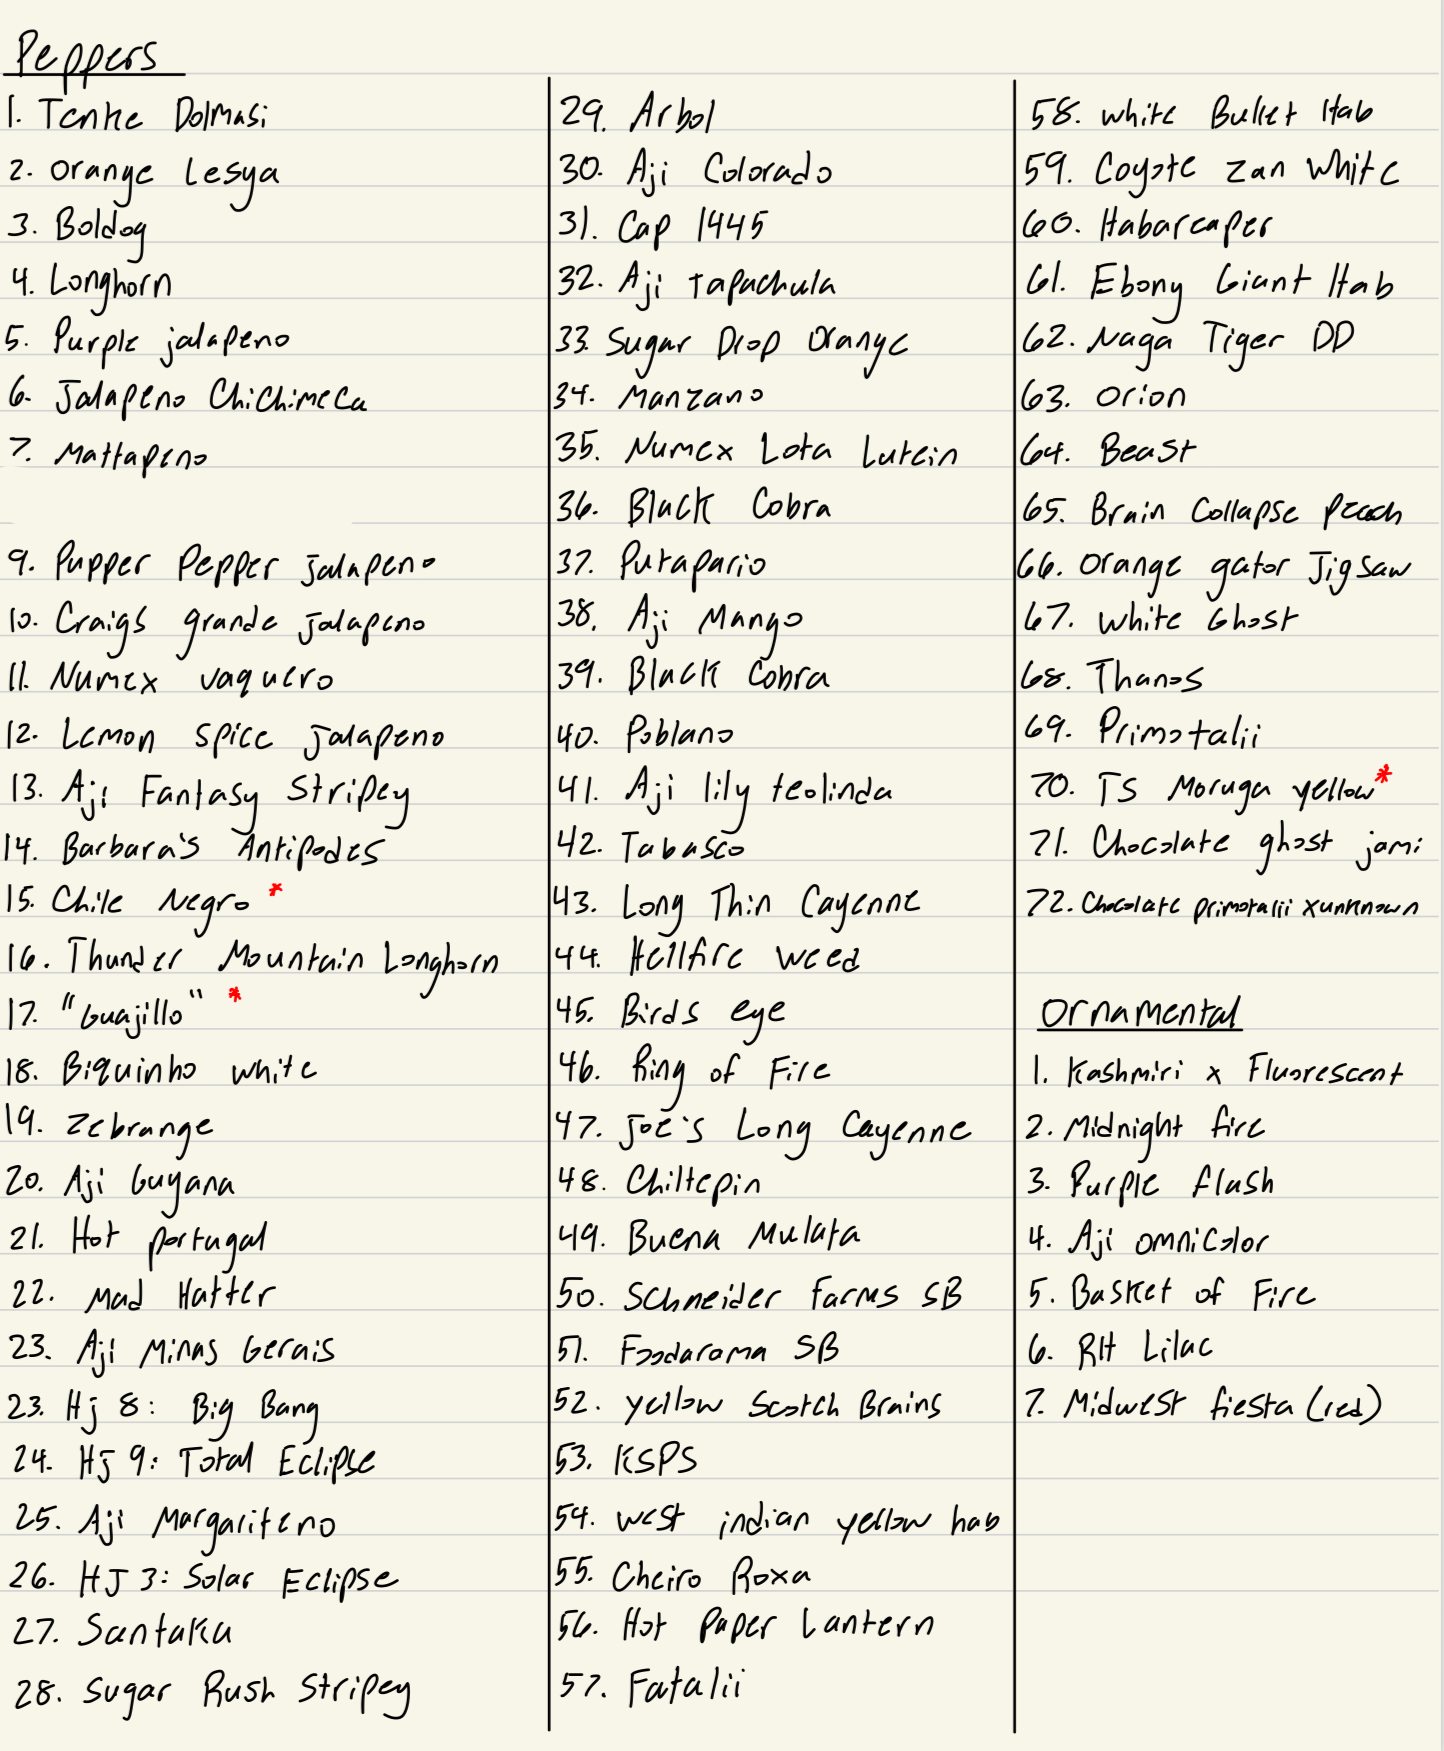 Peppers
1. Tenke Dolmasi
2. Orange Lesya
3. Boldog
4. Longhorn
5. Purple jalapeno
6. Jalapeno Chichimeca
7. Mattapeno
9. Pupper Pepper jalapeno
10. Craigs grande jalapeno
11. Numex vaquero
12. Lemon spice jalapeno
13. Aji Fantasy Stripey
14. Barbara's Antipodes
15. Chile Negro *
16. Thunder Mountain Longhorn
17. "Guajillo" *
18. Biquinho white
19. Zebrange
20. Aji Guyana
21. Hot portugal
22. Mad Hatter
23. Aji Minas Gerais
23. Hj 8: Big Bang
24. HJ 9: Total Eclipse
25. Aji Margariteno
26. HJ 3: Solar Eclipse
27. Santaka
28. Sugar Rush Stripey
29. Arbol
30. Aji Colorado
31. Cap 1445
32. Aji Tapachula
33. Sugar Drop Orange
34. Manzano
35. Numex Lota Lutein
36. Black Cobra
37. Putapario
38. Aji Mango
39. Black Cobra
40. Poblano
41. Aji lily teolinda
42. Tabasco
43. Long Thin Cayenne
44. Hellfire weed
45. Birds eye
46. Ring of Fire
47. Joe's Long Cayenne
48. Chiltepin
49. Buena Mulata
50. Schneider farms SB
51. Foodarama SB
52. yellow Scotch Brains
53. KSPS
54. west indian yellow hab
55. Cheiro Roxa
56. Hot Paper Lantern
57. Fatalii
58. White Bullet Hab
59. Coyote Zan White
60. Habareaper
61. Ebony Giant Hab
62. Naga Tiger DD
63. Orion
64. Beast
65. Brain Collapse Peach
66. Orange gator Jigsaw
67. White Ghost
68. Thanos
69. Primotalii
70. TS Moruga yellow *
71. Chocolate ghost jami
72. Chocolate primotalii x unknown
Ornamental
1. Kashmiri x Fluorescent
2. Midnight fire
3. Purple flash
4. Aji omnicolor
5. Basket of Fire
6. RH Lilac
7. Midwest fiesta (red)